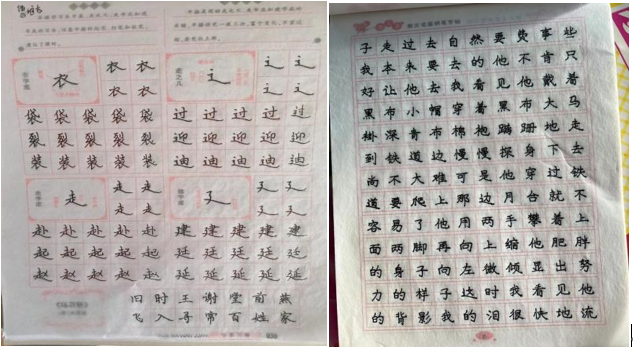 衣 衣 衣 辶 辶 辶
衣 衣 辶 辶
袋 袋 袋 袋 袋 过 过 过 过 过
裂 裂 裂 裂 裂 迎 迎 迎 迎 迎
装 装 装 装 装 迪 迪 迪 迪 迪
走 走 走 廴 廴 廴
走 走 廴 廴
赴 赴 赴 赴 赴 建 建 建 建 建
起 起 起 起 起 廷 廷 廷 廷 廷
赵 赵 赵 赵 赵 延 延 延 延 延
旧 时 王 谢 堂 前 燕
飞 入 寻 常 百 姓 家
子走过去自然要费事些
我本来要去的他不肯只
好让他去我看见他戴着
黑布小帽穿着黑布大马
褂深青布棉袍蹒跚地走
到铁道边慢慢探身下去
尚不大难可是他穿过铁
道要爬上那边月台就不
容易了他用两手攀着上
面两脚再向上缩他肥胖
的身子向左微倾显出努
力的样子这时我看见他
的背影我的泪很快地流